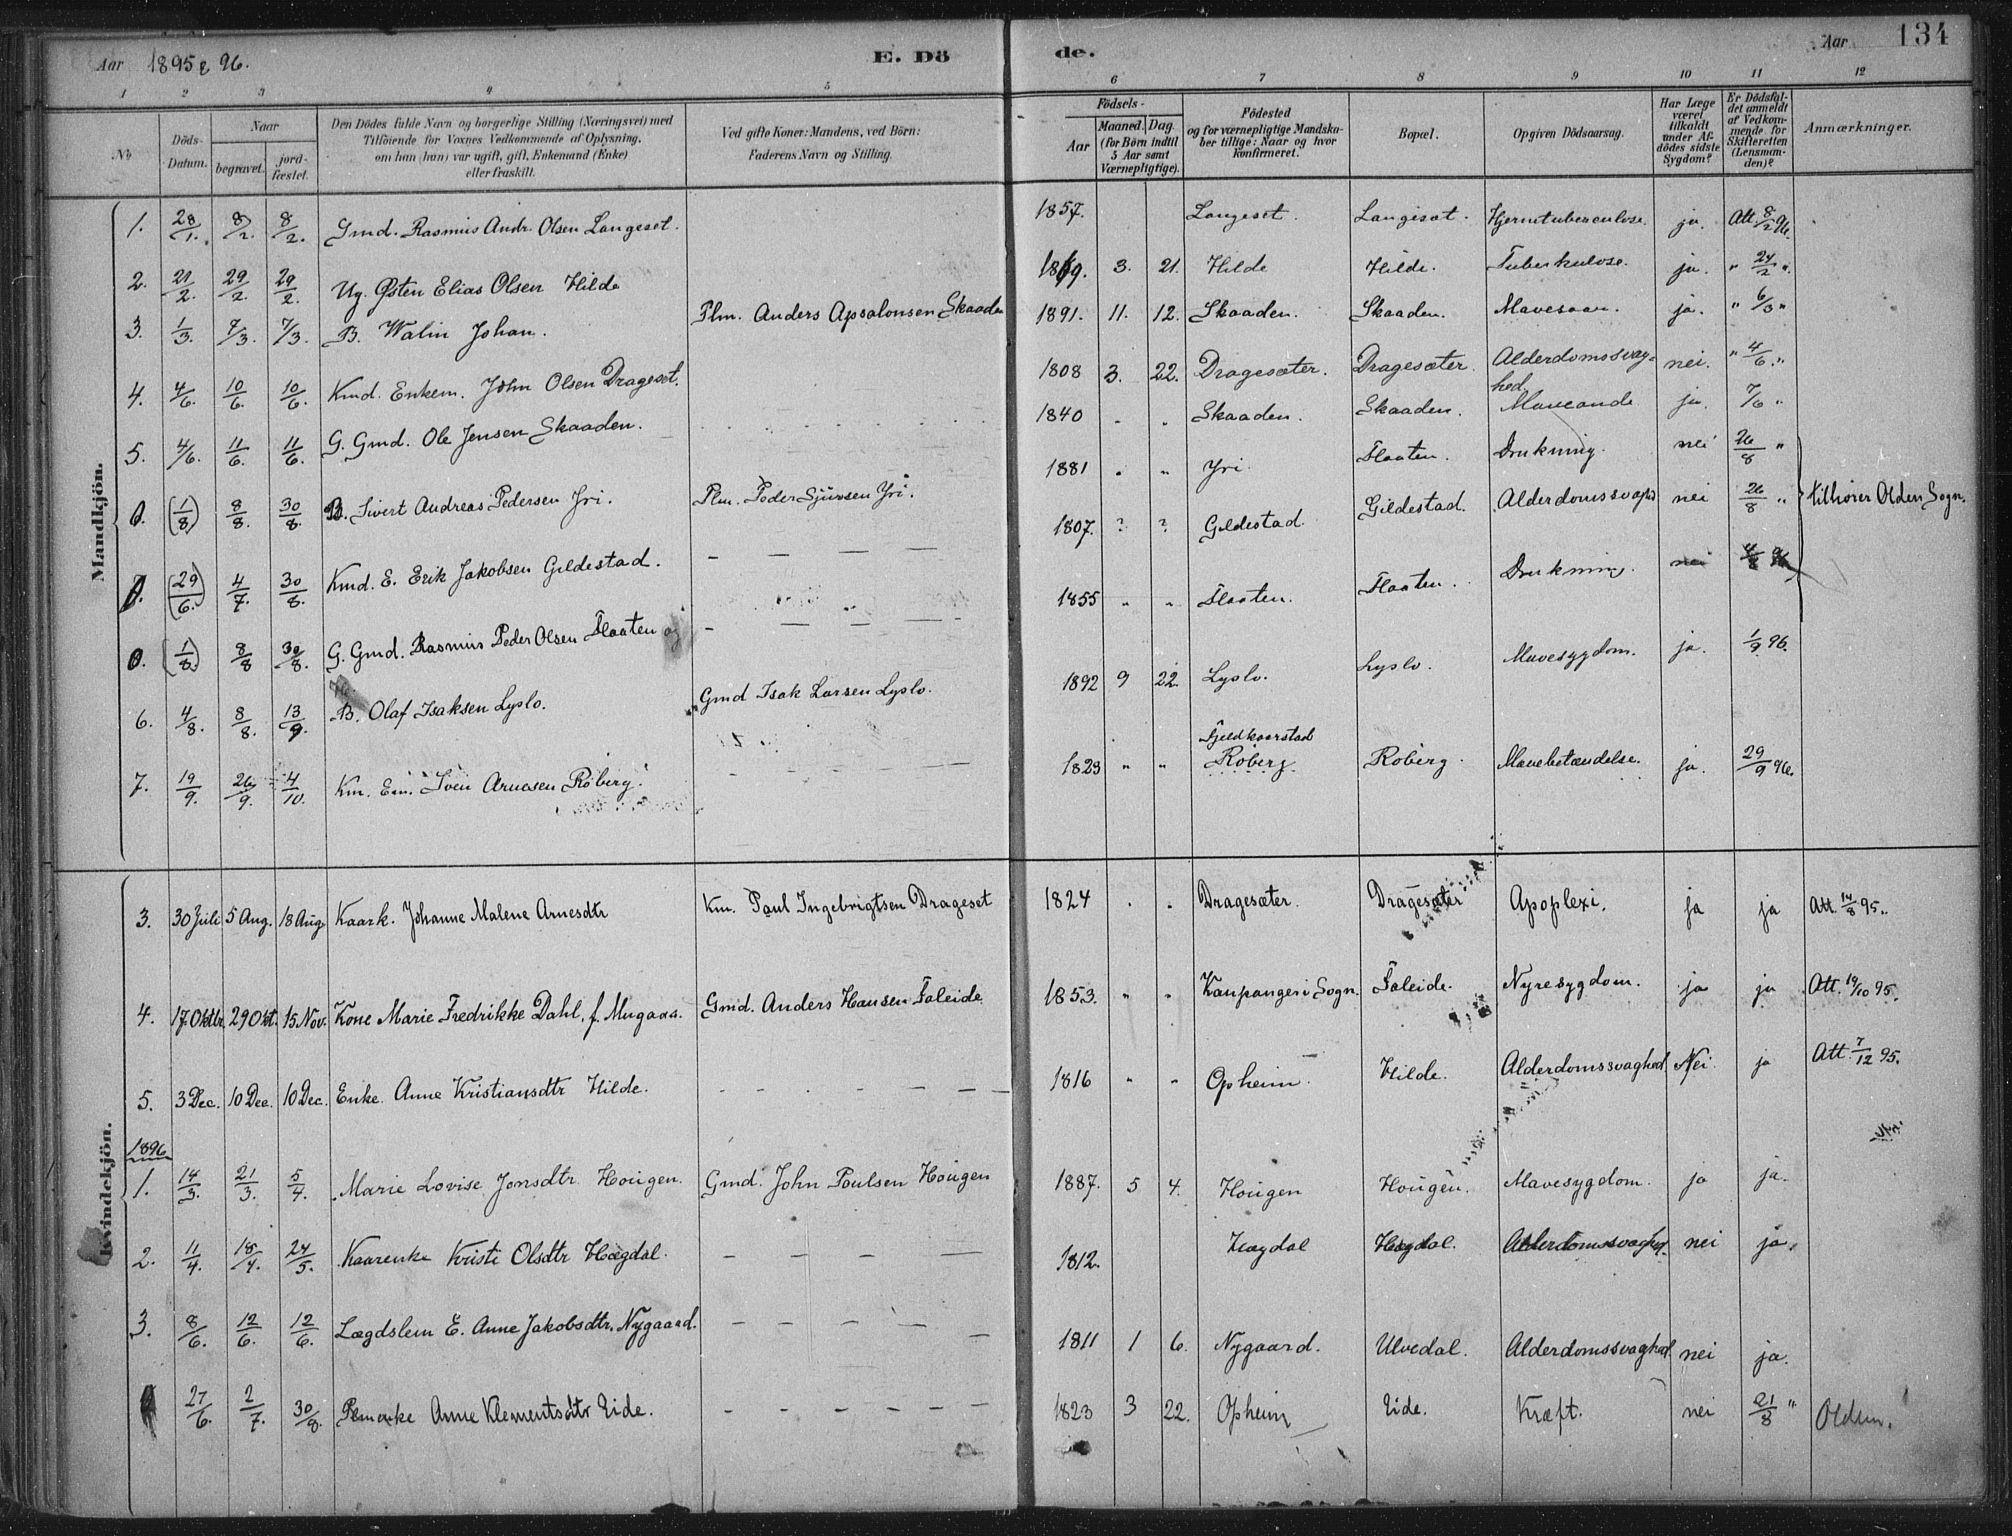 Aar 1895 & 96.
E. Dö
de.
Aar
134
1 2 3 4 5 6 7 8 9 10 11 12
No
Döds-Datum.
Naar
begravet.
jord-fæstet.
Den Dödes fulde Navn og borgerlige Stilling (Næringsvei) med
Tilföiende for Voxnes Vedkommende af Oplysning,
om han (hun) var ugift, gift, Enkemand (Enke)
eller fraskilt.
Ved gifte Koner: Mandens, ved Börn:
Faderens Navn og Stilling.
Födsels-
Aar
Maaned. Dag.
(for Börn indtil
5 Aar samt
Værnepligtige).
Födested
og for værnepligtige Mandska-
ber tillige: Naar og hvor
konfirmeret.
Bopæl.
Opgiven Dödsaarsag.
Har Læge
været
tilkaldt
under Af-
dödes sidste
Sygdom?
Er Dödsfal-
det anmeldt
af Vedkom-
mende for
Skifteretten
(Lensman-
den)?
Anmærkninger.
Mandkjön.
1. 28/1. 8/2. 8/2. Gmd. Rasmus Andr. Olsen Langeset. 1857. Langeset. Langeset. Hjernetuberculose. ja. Att. 8/2 96.
2. 21/2. 29/2. 29/2. Ug. Østen Elias Olsen Hilde 1869. 3. 21. Hilde Hilde. Tuberkulose. ja. " 24/2 ".
3. 1/3. 7/3. 7/3. B. Walin Johan. Plm. Anders Apsalonsen Skaaden 1891. 11. 12. Skaaden. Skaaden. Mavesaar. ja. " 6/3 "
4. 4/6. 10/6. 10/6. Kmd. Enkem. John Olsen Drageset. 1808 3. 22. Dragesæter. Dragesæter. Alderdomssvaghed nei. " 4/6. "
5. 4/6. 11/6. 11/6. G. Gmd. Ole Jensen Skaaden. 1840 " " Skaaden. Skaaden. Maveonde ja. 7/6 "
0. (1/8) 8/8. 30/8. B. Sivert Andreas Pedersen Yri. Plm. Peder Sjursen Yri. 1881 " " Yri. Flaaten. Drukning. nei 26/8 "
0. (29/6.) 4/7. 30/8. Kmd. E. Erik Jakobsen Gildestad. — — — — 1807. ? ? Gildestad. Gildestad. Alderdomssvaghd nei 26/8 " tilhører Olden Sogn.
0. (1/8.) 8/8 30/8. G. Gmd. Rasmus Peder Olsen Flaaten — — — — 1855 " " Flaaten. Flaaten. Drukning. nei
6. 4/8. 8/8. 13/9. B. Olaf Isaksen Lyslo. Gmd Isak Larsen Lyslo. 1892 9 22. Lyslo. Lyslo. Mavesygdom. ja. 1/9 96.
7. 19/9. 26/9. 4/10. Km. Em. Iver Arnesen Röberg. — — — — 1823 " " Röberg. Röberg. Mavebetændelse. ja. 29/9 96.
Kvindekjön.
3. 30 Juli 5 Aug. 18 Aug. Kaark. Johanne Malene Arnesdtr Km. Paul Ingebrigtsen Drageset 1824 " " Dragesæter. Dragesæter Apoplexi. ja ja Att. 14/8 95.
4. 17. Oktbr. 29 Okt. 15. Nov. Kone Marie Fredrikke Dahl, f. Mugaas. Gmd. Anders Hansen Faleide. 1853. " " Kaupanger i Sogn. Faleide. Nyresygdom. ja ja Att. 19/10 95.
5. 3 Dec. 10 Dec. 10 Dec. Enke Anne Kristiansdtr Hilde. — — — — 1816 " " Opheim. Hilde. Alderdomssvaghed Nei. ja Att. 7/12 95.
1896
1. 14/3. 21/3. 5/4. Marie Lovise Jonsdtr Hougen. Gmd. John Paulsen Hougen 1887. 5 4. Hougen Hougen. Mavesygdom. ja ja.
2. 11/4. 18/4. 24/5. Kaarenke Kristi Olsdtr Hægdal. — — — — 1812. Hægdal Hægdal. Alderdomssvaghed. nei ja.
3. 8/6. 12/6. 12/6. Lægdslem E. Anne Jakobsdtr. Nygaard. — — — — 1811 1 6. Nygaard. Ulvedal. Alderdomssvaghed nei ja.
27/6. 2/7. 30/8. Plmenke Anne Klementsdtr Eide. — — — — 1823 3 22. Opheim Eide. Kræft. nei 21/8 " Olden.